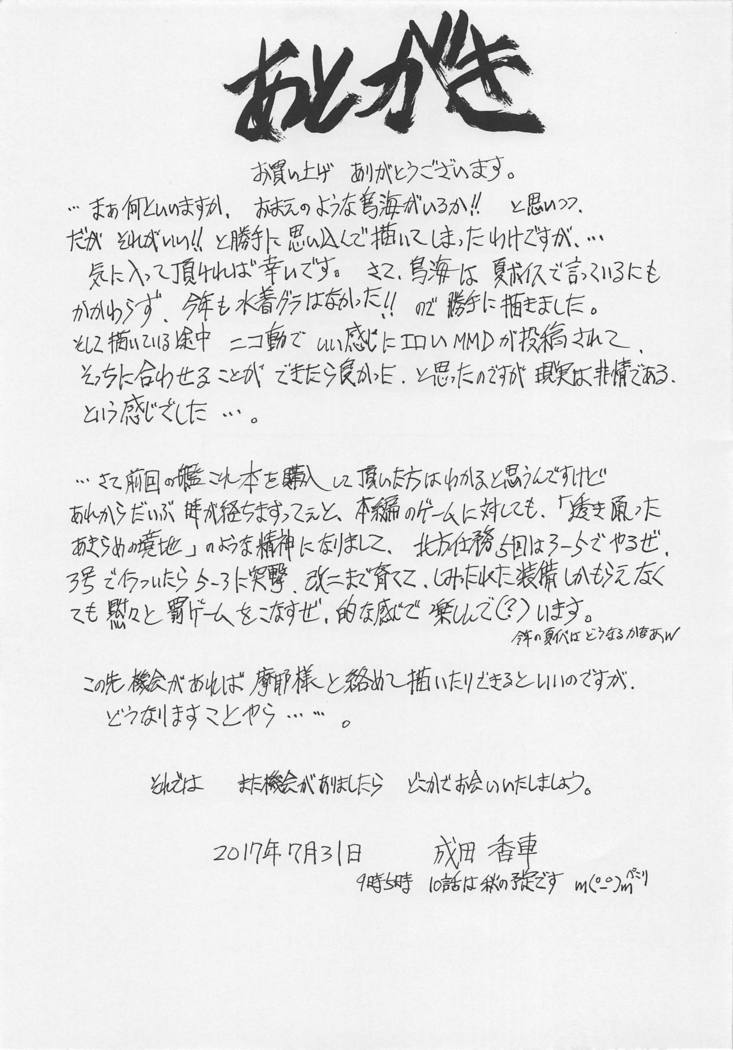 あとがき
お買い上げ ありがとうございます。
… まぁ何といいますか、おまえのような鳥海がいるか!! と思いつつ、
だが それがいい!! と勝手に思い込んで描いてしまったわけですが、…
気に入って頂ければ幸いです。さて、鳥海は夏ボイスで言っているにも
かかわらず、今年も水着グラはなかった!! ので勝手に描きました。
そして描いている途中 ニコ動でいい感じにエロいMMDが投稿されて、
そっちに合わせることができたら良かった、と思ったのですが現実は非情である、
という感じでした …。
… さて前回の艦これ本を購入して頂いた方はわかると思うんですけど
あれからだいぶ時が経ちますってぇと、本編のゲームに対しても、「透き通った
あきらめの境地」のような精神になりまして、北方任務5回は3-5でやるぜ、
3号で行ついたら5-3に突撃、改二まで育てて、しみったれた装備しかもらえなく
ても黙々と罰ゲームをこなすぜ、的な感じで楽しんで(?)います。
今年の夏イベはどうなるかなあw
この先機会があれば摩耶様と絡めて描いたりできるといいのですが、
どうなりますことやら … …。
それでは また機会がありましたら どこかでお会いいたしましょう。
2017年7月31日 成田 香車
9時5時 10話は秋の予定です m(°_°)m ペこり